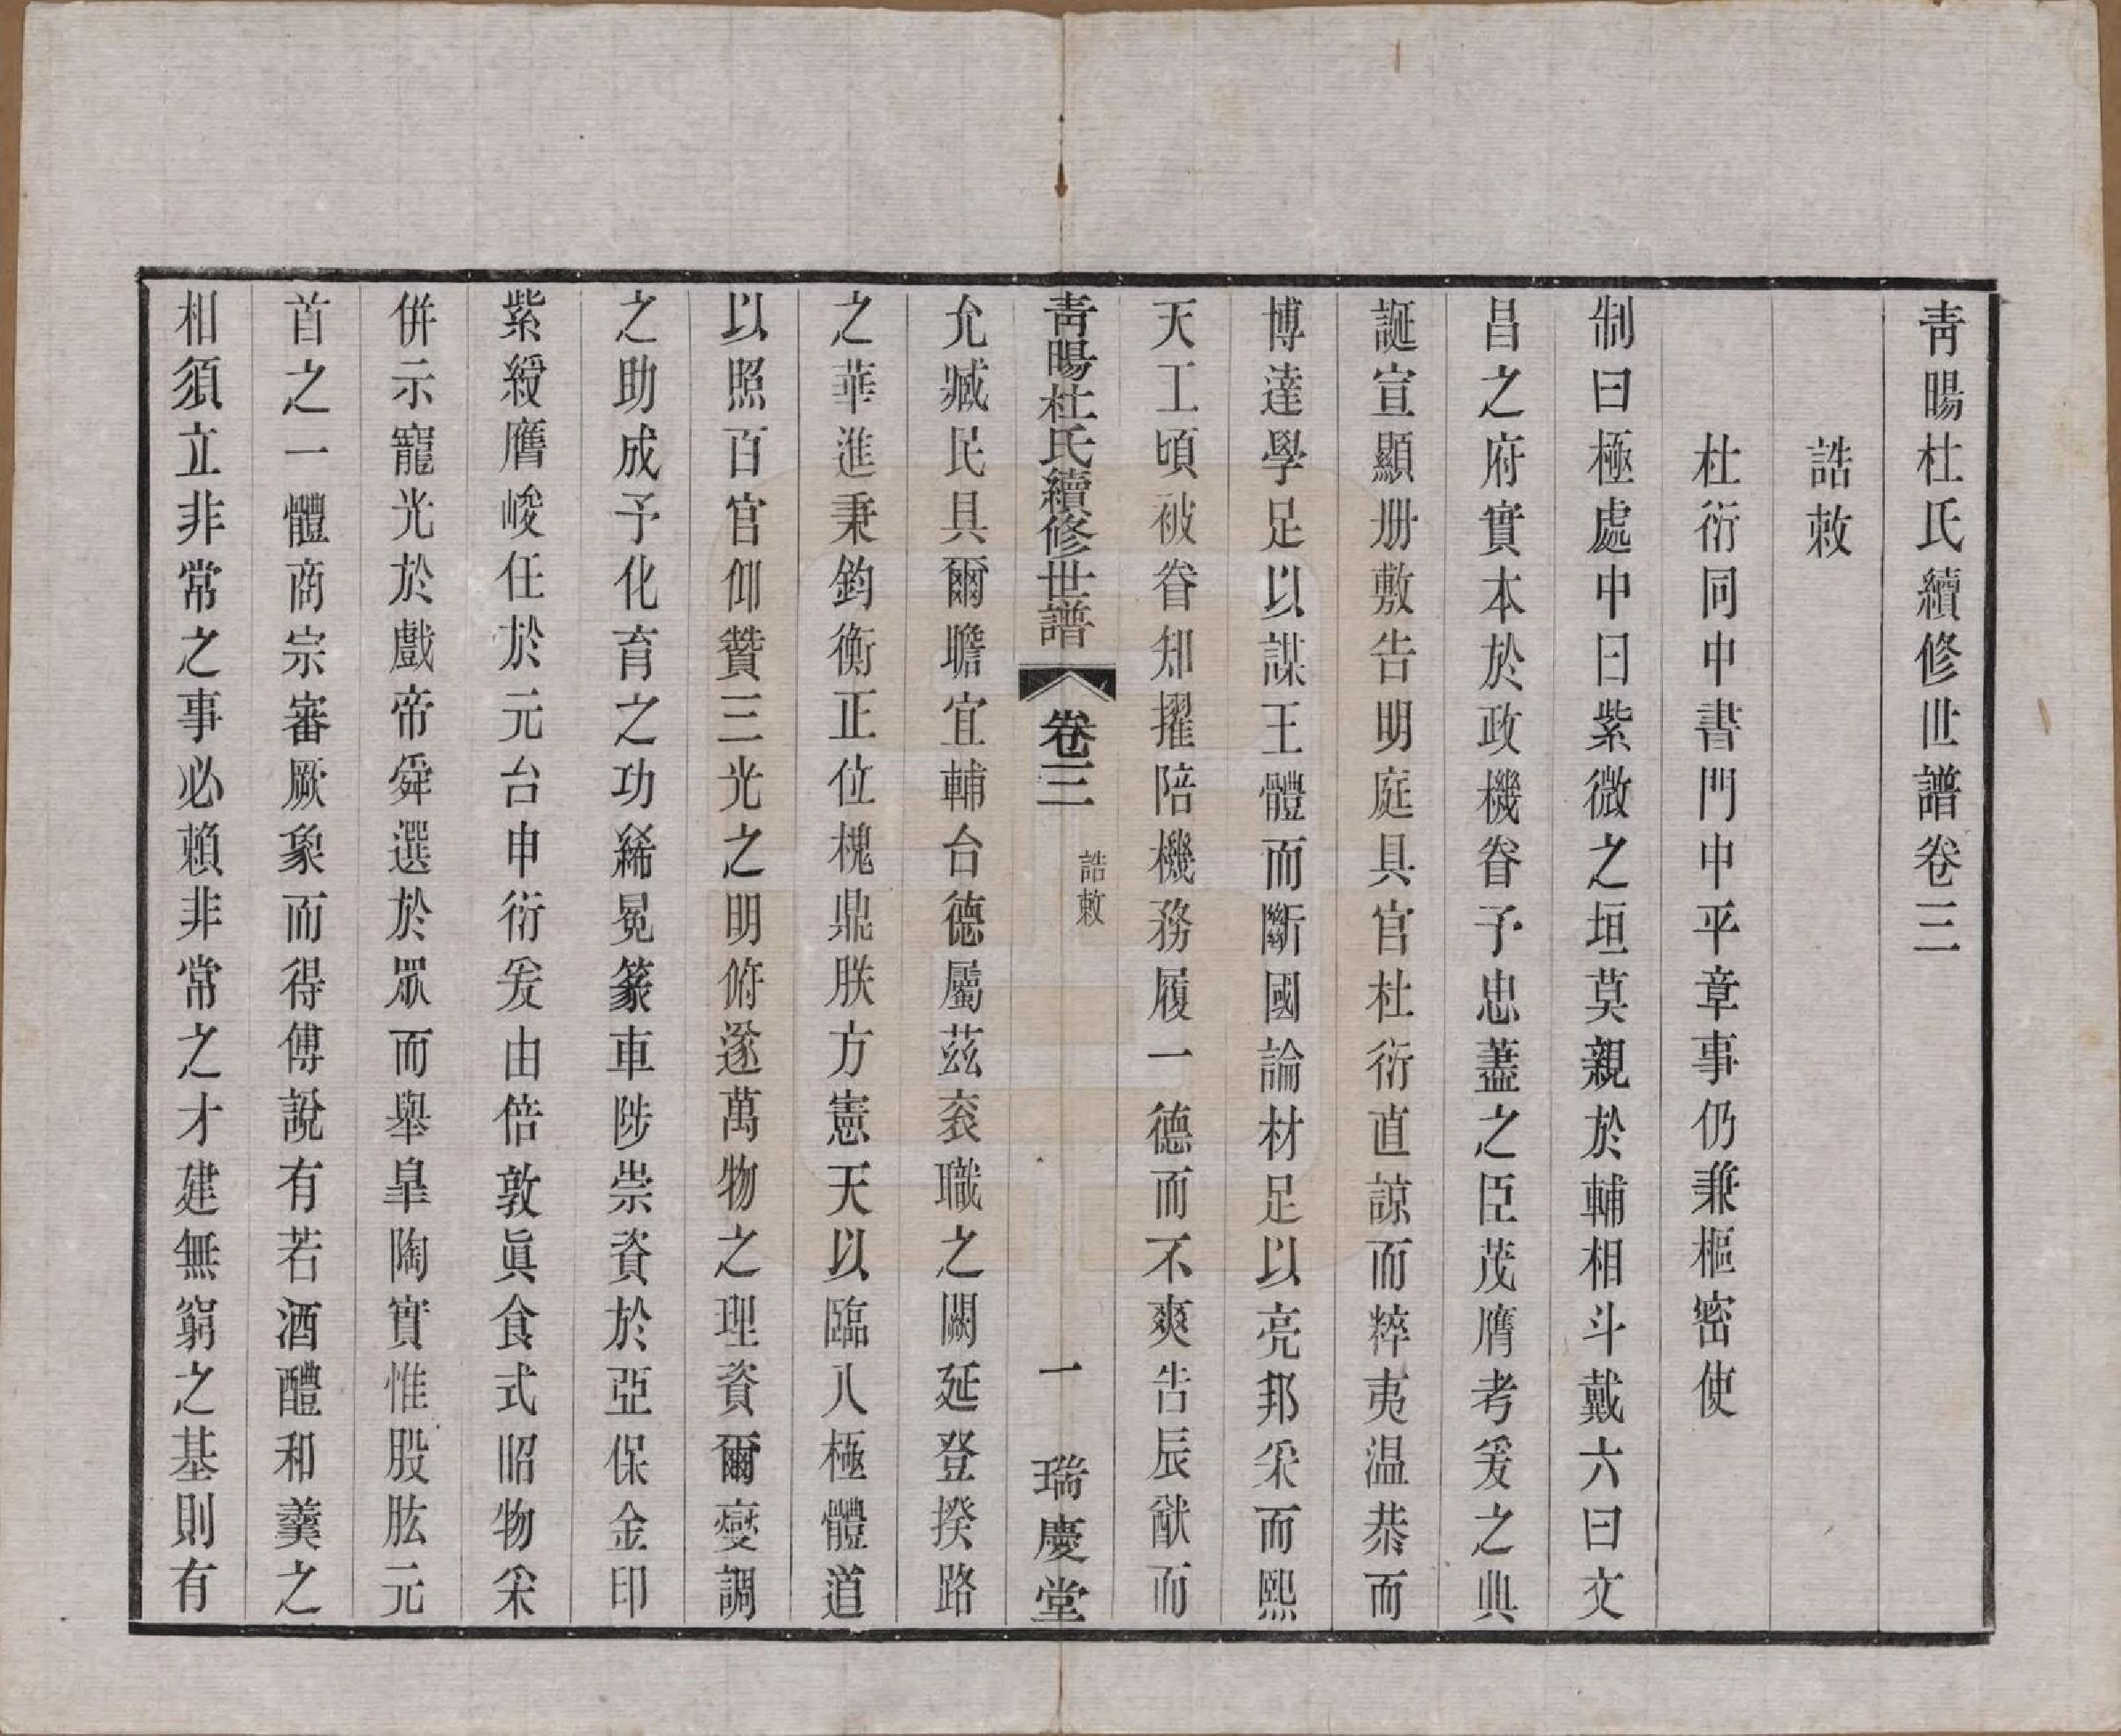 青暘杜氏續修世譜卷三
誥敕
杜衍同中書門中平章事仍兼樞密使
制曰極處中曰紫微之垣莫親於輔相斗戴六曰文
昌之府實本於政機眷予忠藎之臣茂膺考爰之典
誕宣顯册敷告明庭具官杜衍直諒而粹夷温恭而
博達學足以謀王體而斷國論材足以亮邦采而熙
天工頃被眷知擢陪機務履一德而不爽告辰猷而
青暘杜氏續修世譜 卷三 誥敕 一 瑞慶堂
允臧民具爾瞻宜輔台德屬茲衮職之闕延登揆路
之華進秉鈞衡正位槐鼎朕方憲天以臨八極體道
以照百官仰贊三光之明俯遂萬物之理資爾燮調
之助成予化育之功絺冕篆車陟崇資於亞保金印
紫綬膺峻任於元台申衍爰由倍敦眞食式昭物采
併示寵光於戲帝舜選於眾而舉皐陶實惟股肱元
首之一體商宗審厥象而得傅說有若酒醴和羹之
相須立非常之事必賴非常之才建無窮之基則有